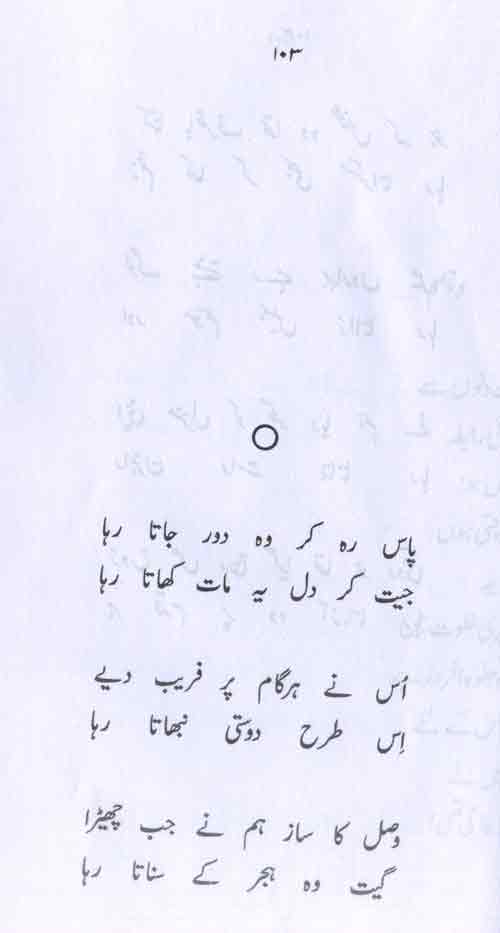 ۱۰۳
پاس رہ کر وہ دور جاتا رہا
جیت کر دل یہ مات کھاتا رہا
اُس نے ہرگام پر فریب دیے
اِس طرح دوستی نبھاتا رہا
وصل کا ساز ہم نے جب چھیڑا
گیت وہ ہجر کے سناتا رہا